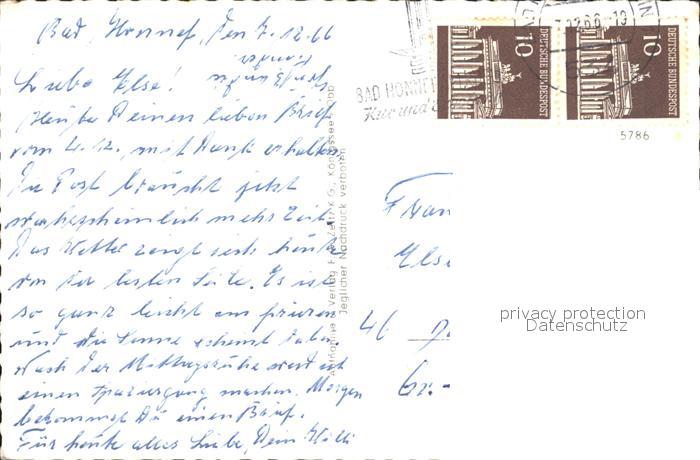 Bad Honnef, den 7.12.66
Liebe Else!
Heute Deinen lieben Brief
vom 4.12. mit Dank erhalten.
Die Post braucht jetzt
wahrscheinlich mehr Zeit.
Das Wetter zeigt sich heute
von der besten Seite. Es ist
so ganz leicht am frieren
und die Sonne scheint dabei.
Nach der Mittagsruhe werd ich
einen Spaziergang machen. Morgen
bekommst Du einen Brief.
Für heute alles Liebe, Dein Willi
Verlag
Königssee
Jeglicher Nachdruck verboten
BAD HONNEF
Kur und
7.12.66-19
10
DEUTSCHE BUNDESPOST
10
DEUTSCHE BUNDESPOST
5786
Frau
Else
46
privacy protection
Datenschutz